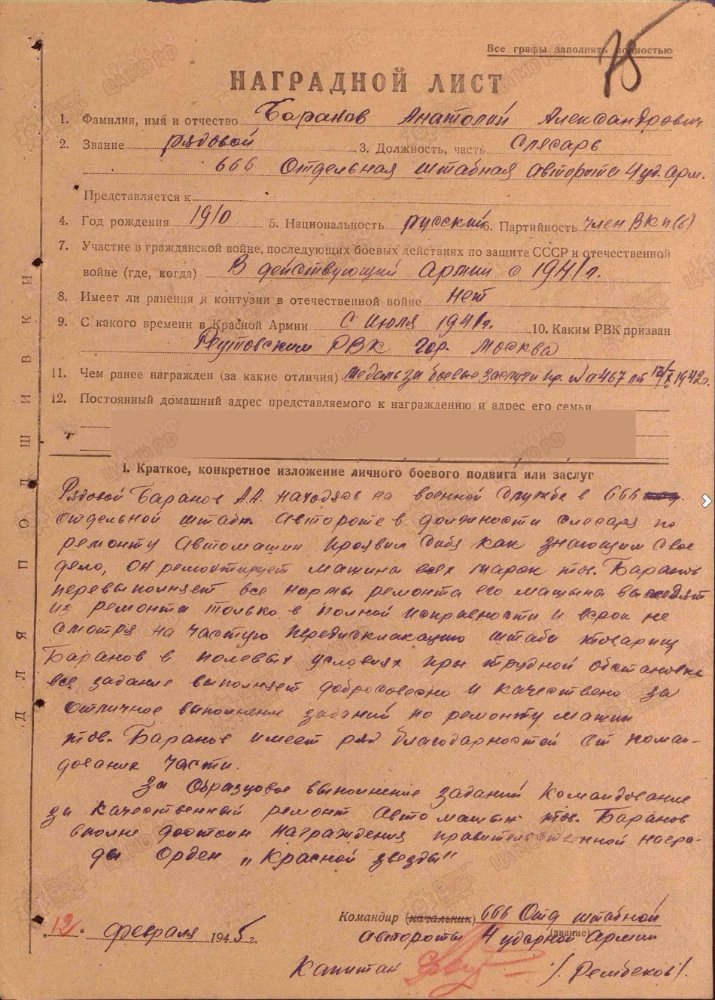 Все графы заполнять полностью
75
НАГРАДНОЙ ЛИСТ
1. Фамилия, имя и отчество Баранов Анатолий Александрович
2. Звание рядовой 3. Должность, часть Слесарь
666 Отдельная штабная авторота 4 уд. Арм.
Представляется к
4. Год рождения 1910 5. Национальность русский 6. Партийность член ВКП(б)
7. Участие в гражданской войне, последующих боевых действиях по защите СССР и отечественной
войне (где, когда) В действующий Армии с 1941 г.
8. Имеет ли ранения и контузии в отечественной войне нет
9. С какого времени в Красной Армии С июля 1941г. 10. Каким РВК призван
РВК гор. Москва
11. Чем ранее награжден (за какие отличия) Медаль за боевые заслуги пр. 1942г.
12. Постоянный домашний адрес представляемого к награждению и адрес его семьи
I. Краткое, конкретное изложение личного боевого подвига или заслуг
Рядовой Баранов А.А. находясь на военной службе в 666
отдельной штабн. Автороте в должности слесаря по
ремонту Автомашин проявил себя как знающим свое
дело, он ремонтирует машина всех марок тов. Баранов
перевыполняет все нормы ремонта его машына выходят
из ремонта только в полной исправности и в срок не
смотря на частую передислакацию штаба товарищ
Баранов в полевых условиях пры трудной обстановке
все задание выполняет добросовесно и качествено за
отличное выполнение заданий по ремонту машин
тов. Баранов имеет ряд благодарностей от коман-
дования части.
За Образцовое выполнение заданий Командование
за качественный ремонт автомашын тов. Баранов
вполне достоин награждения правительственной награ-
ды Орден „Красной звезды"
12 февраля 1945 г.
Командир (начальник) 666 Отд штабной
(звание)
автороты 4 ударной Армии
Капитан /. Рембеков/.
ДЛЯ ПОДШИВКИ
ЦАМО.РФ